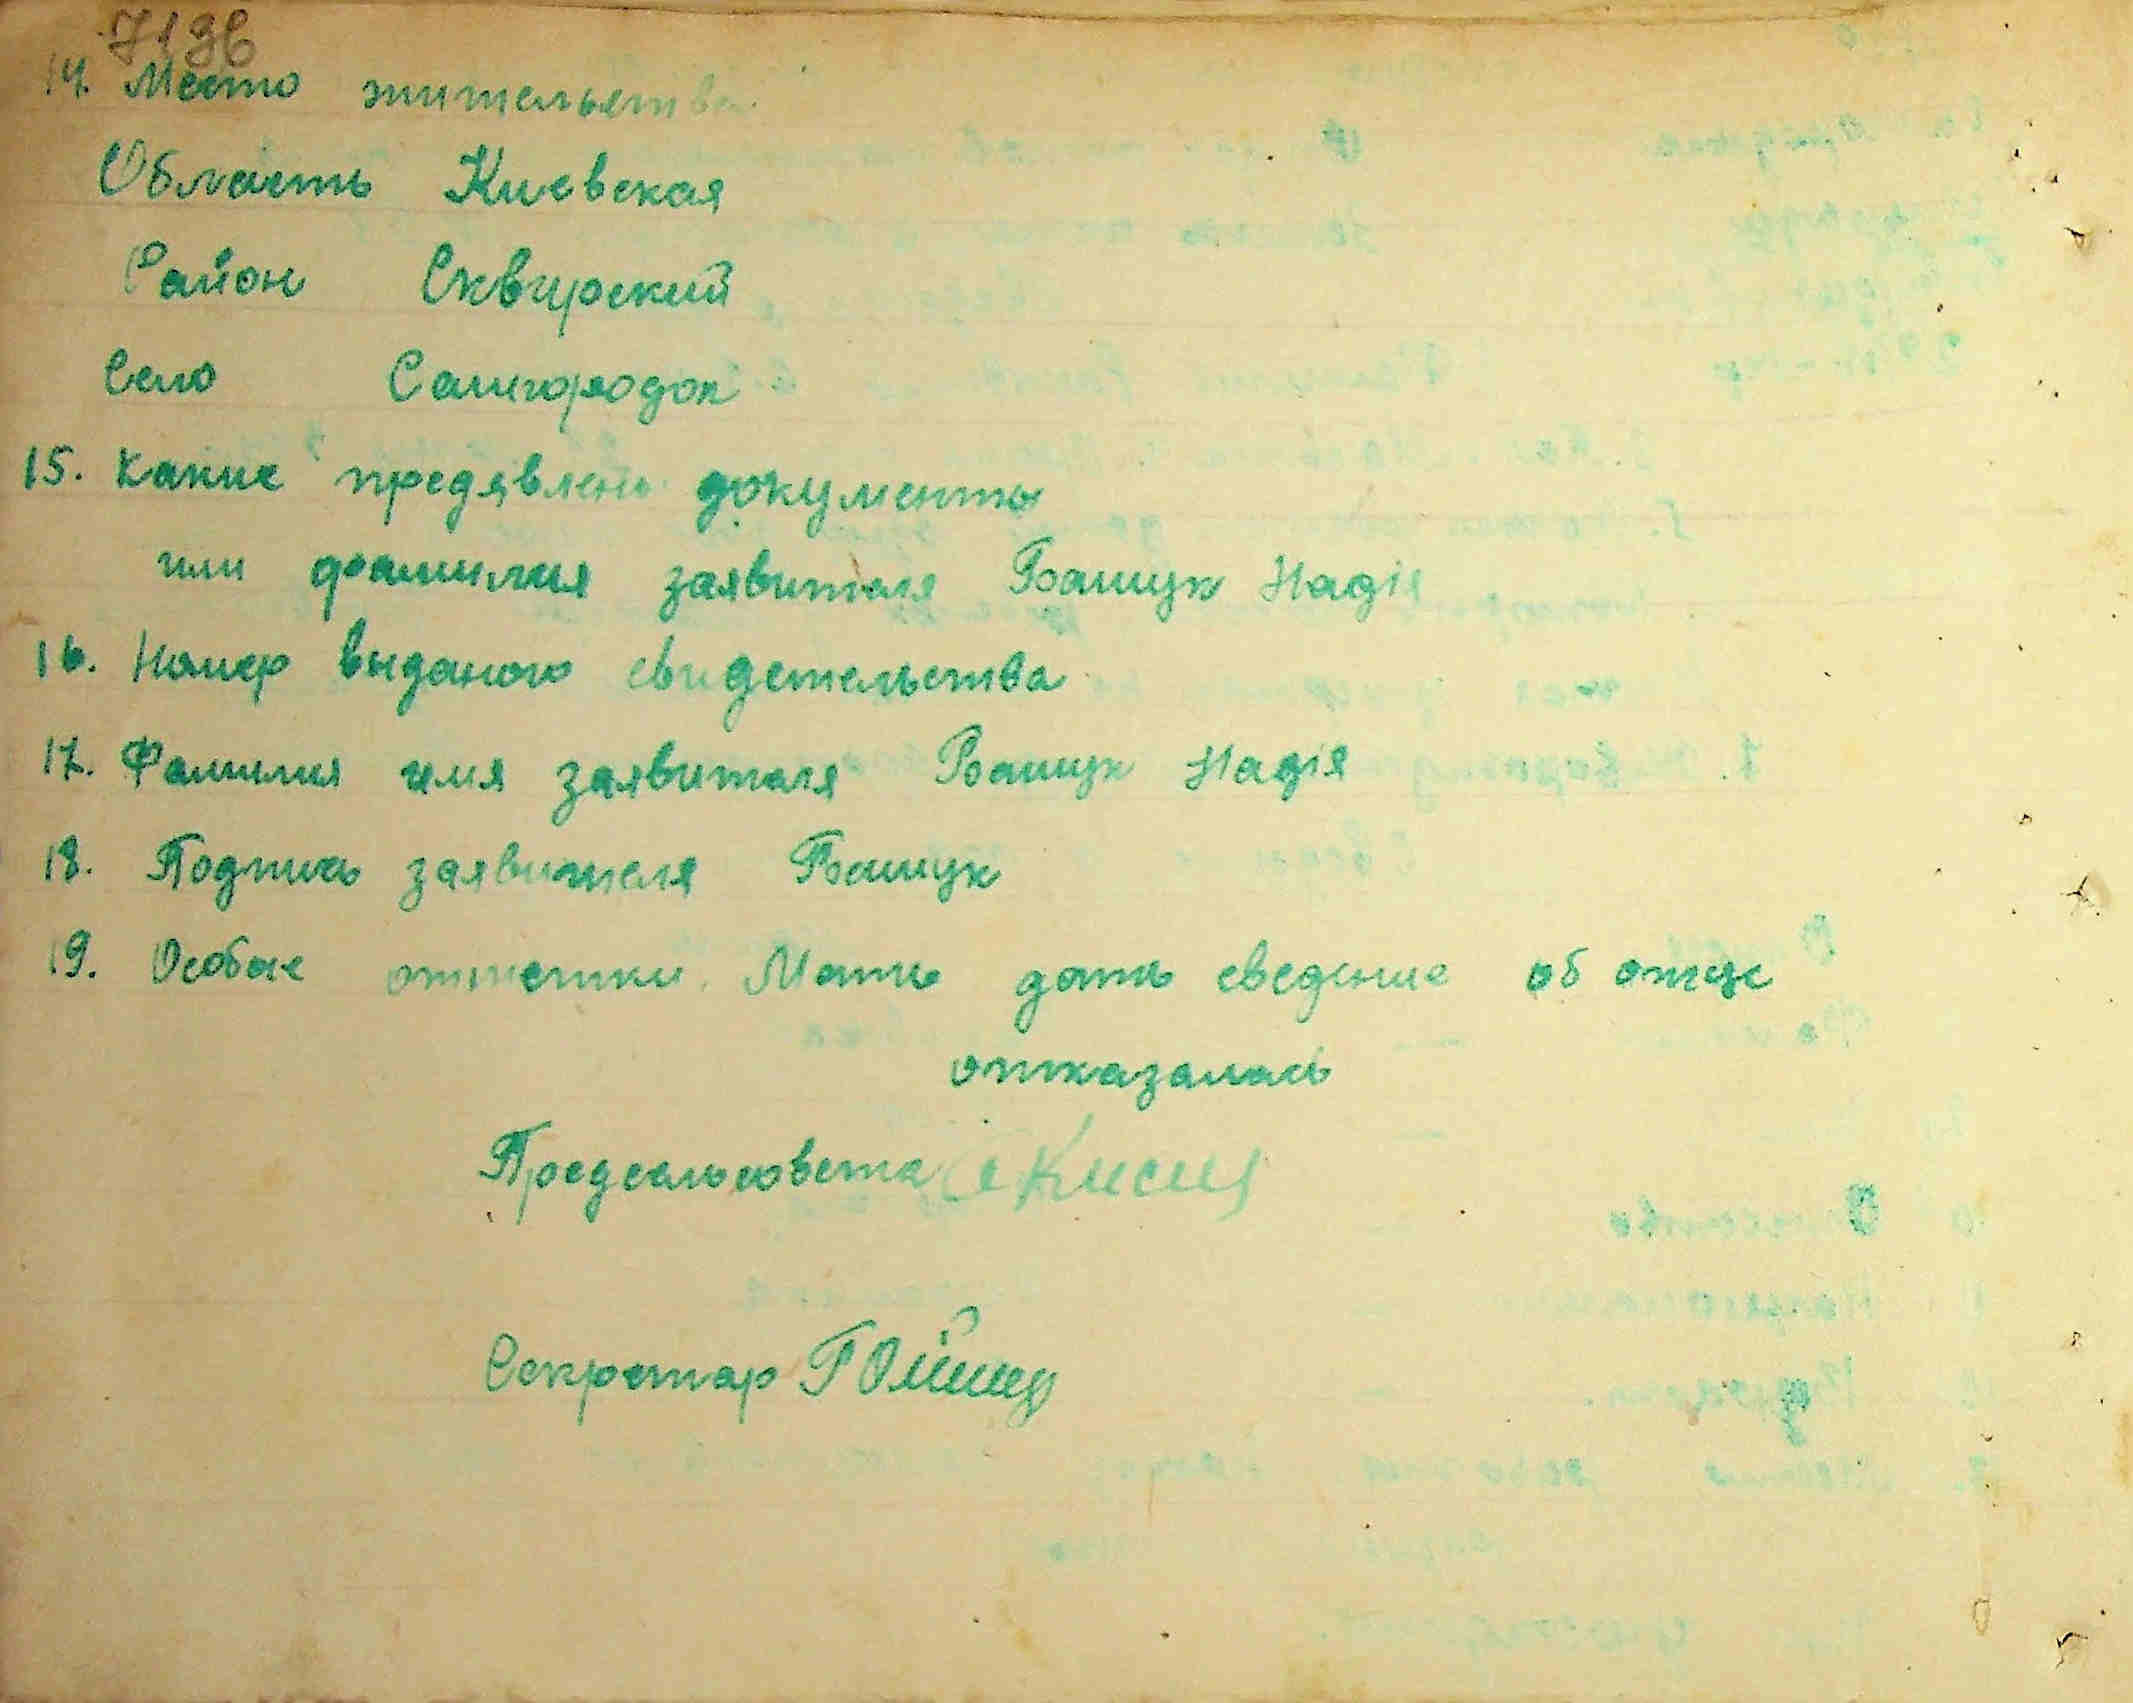 719б
14. Место жительства.
Область Киевская
Район Сквирский
Село Самгородок
15. Какие предявлены документы
или фамилия заявителя Бащук Надія
16. Номер выданого свидетельства
17. Фамилия имя заявителя Бащук Надія
18. Подпись заявителя Бащук
19. Особые отметки. Мать дать сведение об отце
отказалась
Предсельсовета
Секретар